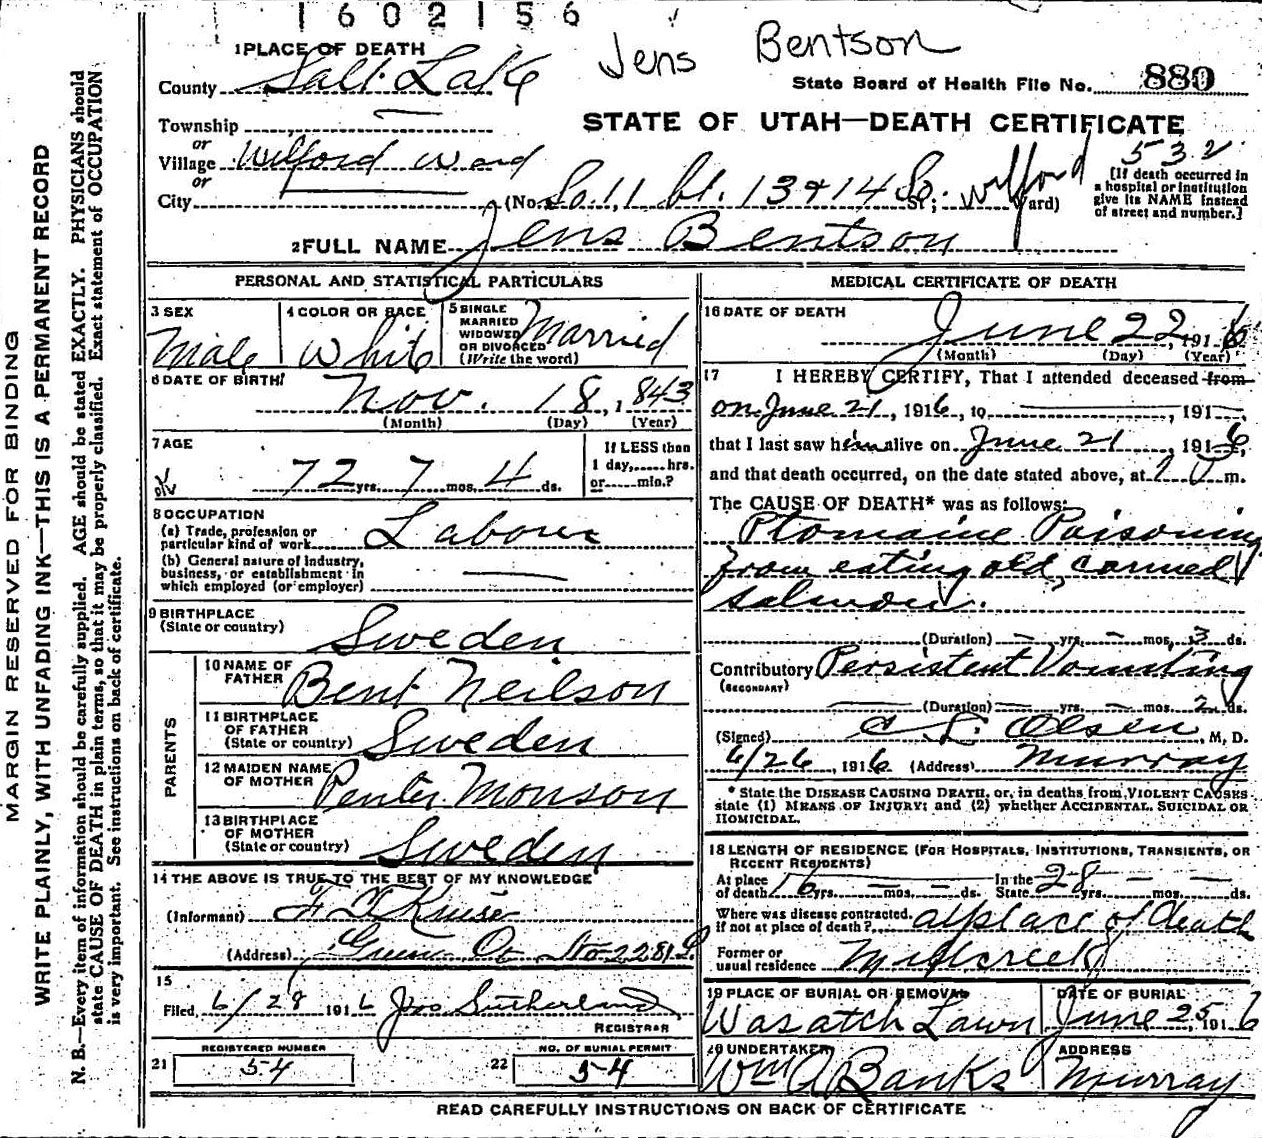 1602156
Jens Bentson
1 PLACE OF DEATH
County Salt Lake
State Board of Health File No. 880
Township
or
Village Wilford Ward
or
City
STATE OF UTAH—DEATH CERTIFICATE
532
(No. So. 11 bt. 13 & 14 So. St.; Wilford Ward)
[If death occurred in
a hospital or institution
give its NAME instead
of street and number.]
2 FULL NAME Jens Bentson
PERSONAL AND STATISTICAL PARTICULARS
3 SEX
Male
4 COLOR OR RACE
White
5 SINGLE
MARRIED
WIDOWED
OR DIVORCED
(Write the word)
Married
6 DATE OF BIRTH
Nov. 18, 1843
(Month) (Day) (Year)
7 AGE
72 yrs. 7 mos. 4 ds.
If LESS than
1 day,......hrs.
or......min.?
8 OCCUPATION
(a) Trade, profession or
particular kind of work Laborer
(b) General nature of industry,
business, or establishment in
which employed (or employer)
9 BIRTHPLACE
(State or country) Sweden
PARENTS
10 NAME OF
FATHER Bent Neilson
11 BIRTHPLACE
OF FATHER
(State or country) Sweden
12 MAIDEN NAME
OF MOTHER Penter Monson
13 BIRTHPLACE
OF MOTHER
(State or country) Sweden
14 THE ABOVE IS TRUE TO THE BEST OF MY KNOWLEDGE
(Informant) Kruse
(Address)
15
Filed 6/28 1916 Jos Sutherland
REGISTRAR
REGISTERED NUMBER
21 54
NO. OF BURIAL PERMIT
22 54
MEDICAL CERTIFICATE OF DEATH
16 DATE OF DEATH
June 22, 1916
(Month) (Day) (Year)
17 I HEREBY CERTIFY, That I attended deceased from
on June 21, 1916, to , 191
that I last saw him alive on June 21 1916,
and that death occurred, on the date stated above, at m.
The CAUSE OF DEATH* was as follows:
Ptomaine Poisoning
from eating old, canned
salmon.
(Duration) – yrs. – mos. 3 ds.
Contributory Persistent Vomiting
(SECONDARY)
(Duration) — yrs. – mos. 2 ds.
(Signed) C L Olsen, M. D.
6/26, 1916 (Address) Murray
* State the DISEASE CAUSING DEATH, or, in deaths from VIOLENT CAUSES
state (1) MEANS OF INJURY; and (2) whether ACCIDENTAL, SUICIDAL OR
HOMICIDAL.
18 LENGTH OF RESIDENCE (FOR HOSPITALS, INSTITUTIONS, TRANSIENTS, OR
RECENT RESIDENTS)
At place
of death 16 yrs. — mos. — ds. In the
State 28 yrs. — mos. — ds.
Where was disease contracted,
if not at place of death? at place of death
Former or
usual residence Millcreek
19 PLACE OF BURIAL OR REMOVAL
Wasatch Lawn
DATE OF BURIAL
June 25, 1916
20 UNDERTAKER
Wm A Banks
ADDRESS
Murray
READ CAREFULLY INSTRUCTIONS ON BACK OF CERTIFICATE
MARGIN RESERVED FOR BINDING
WRITE PLAINLY, WITH UNFADING INK—THIS IS A PERMANENT RECORD
N. B.—Every item of information should be carefully supplied. AGE should be stated EXACTLY. PHYSICIANS should
state CAUSE OF DEATH in plain terms, so that it may be properly classified. Exact statement of OCCUPATION
is very important. See instructions on back of certificate.